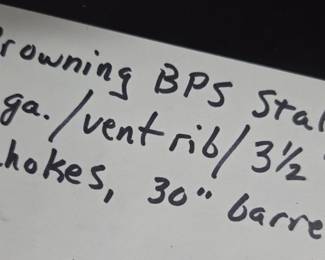 rowning BPS Stal
ga./vent rib/3½
hokes, 30" barre